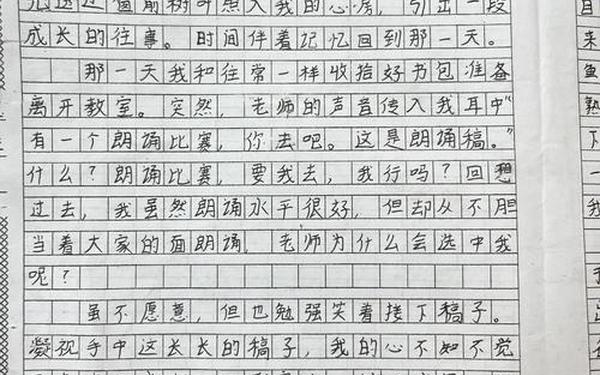 光透过窗前树叶照入我的心房，引出一段
成长的往事。时间伴着记忆回到那一天。
那一天我和往常一样收拾好书包准备
离开教室。突然，老师的声音传入我耳中“
有一个朗诵比赛，你去吧。这是朗诵稿。”
什么？朗诵比赛，要我去，我行吗？回想
过去，我虽然朗诵水平很好，但却从不胆
当着大家的面朗诵，老师为什么会选中我
呢？
虽不愿意，但也勉强笑着接下稿子。
凝视手中这长长的稿子，我的心不知不觉
自
来
鱼
熟
下
一
我